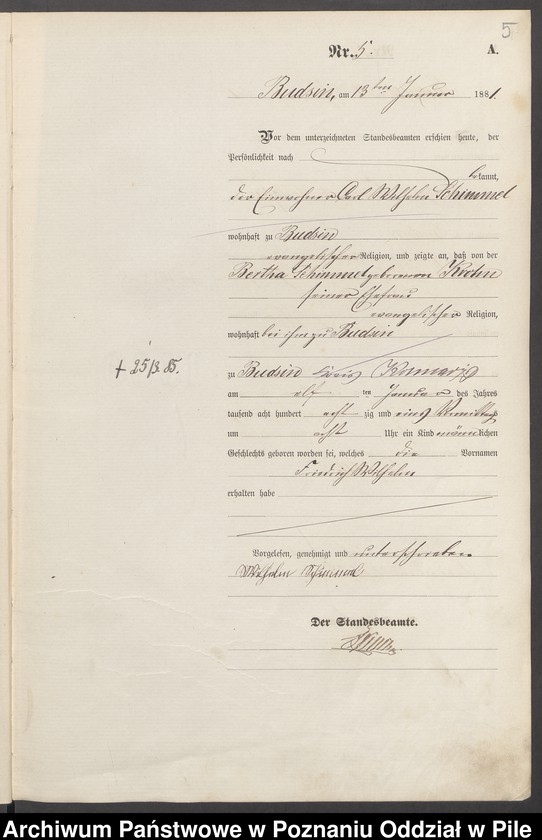 5
Nr. 5. A.
Budsin, am 13ten Januar 1881.
Vor dem unterzeichneten Standesbeamten erschien heute, der
Persönlichkeit nach
bekannt,
der Einwohner Carl Wilhelm Schimmel
wohnhaft zu Budsin
evangelischer Religion, und zeigte an, daß von der
Bertha Schimmel geborenen
seiner Ehefrau
evangelischer Religion,
wohnhaft bei ihm zu Budsin
+ 25/3. 85.
zu Budsin Kreis
am elf ten Januar des Jahres
tausend acht hundert acht zig und eins Vormittags
um acht Uhr ein Kind männlichen
Geschlechts geboren worden sei, welches die Vornamen
Friedrich Wilhelm
erhalten habe
Vorgelesen, genehmigt und unterschrieben
Wilhelm Schimmel
Der Standesbeamte.
Archiwum Państwowe w Poznaniu Oddział w Pile